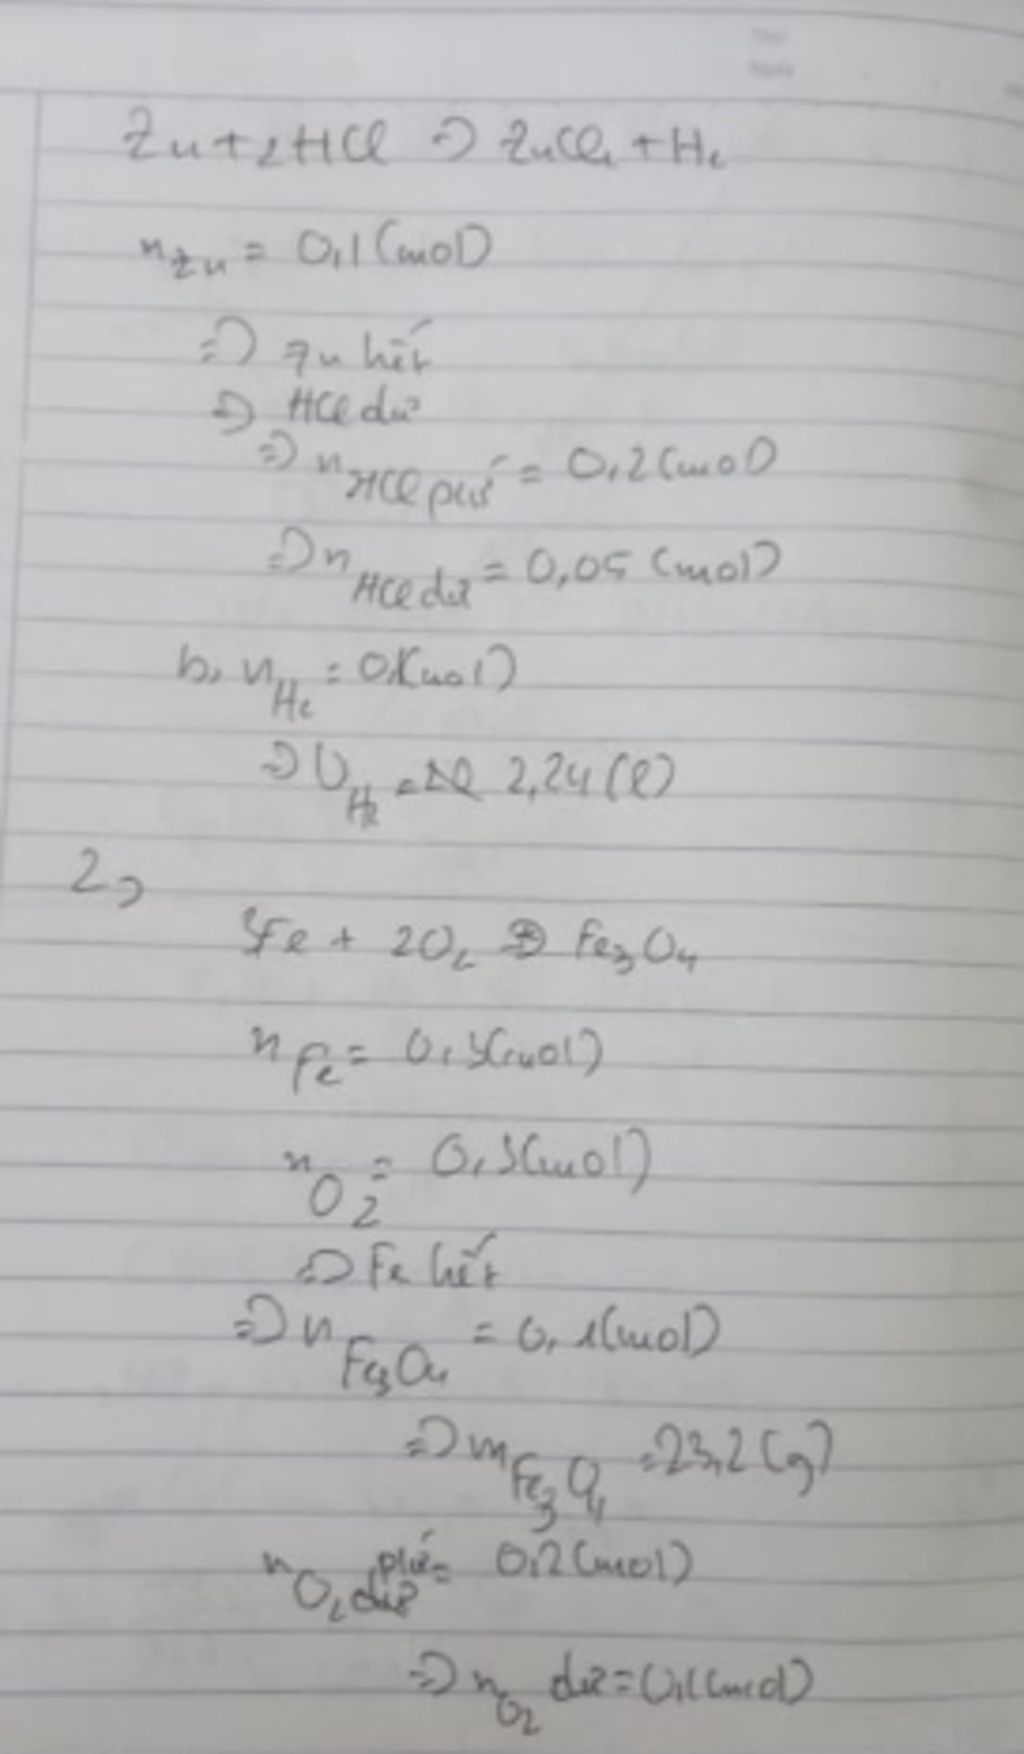 Zn + 2HCl => ZnCl₂ + H₂
nZn = 0,1 (mol)
=> Zn hết
=> HCl dư
=> nHCl pứ = 0,2 (mol)
=> nHCl dư = 0,05 (mol)
b, nH₂ = 0,1 (mol)
=> VH₂ = 2,24 (l)
2,
3Fe + 2O₂ => Fe₃O₄
nFe = 0,3 (mol)
nO₂ = 0,3 (mol)
=> Fe hết
=> nFe₃O₄ = 0,1 (mol)
=> mFe₃O₄ = 23,2 (g)
nO₂ pứ = 0,2 (mol)
=> nO₂ dư = 0,1 (mol)